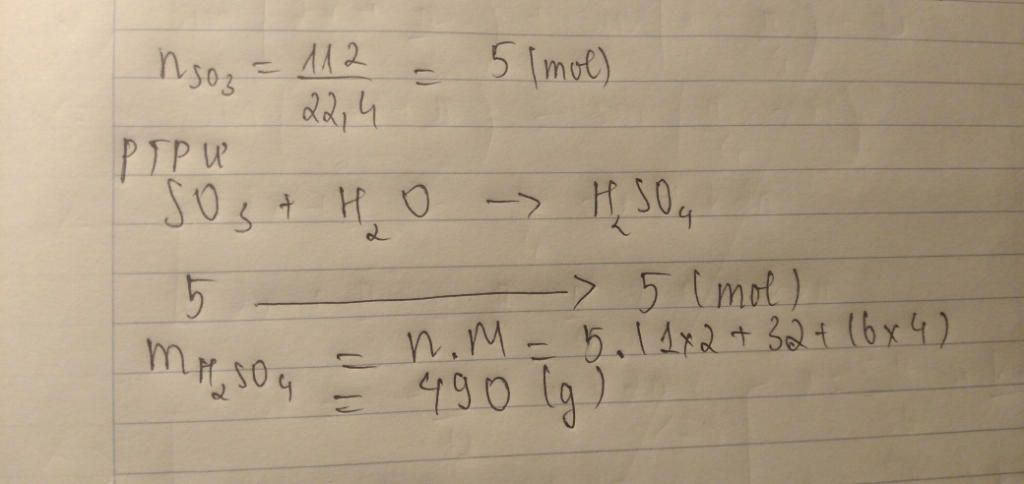 nSO₃ = 112/22,4 = 5 (mol)
PTPƯ
SO₃ + H₂O → H₂SO₄
5 → 5 (mol)
mH₂SO₄ = n.M = 5.(1x2 + 32 + 16x4)
= 490 (g)